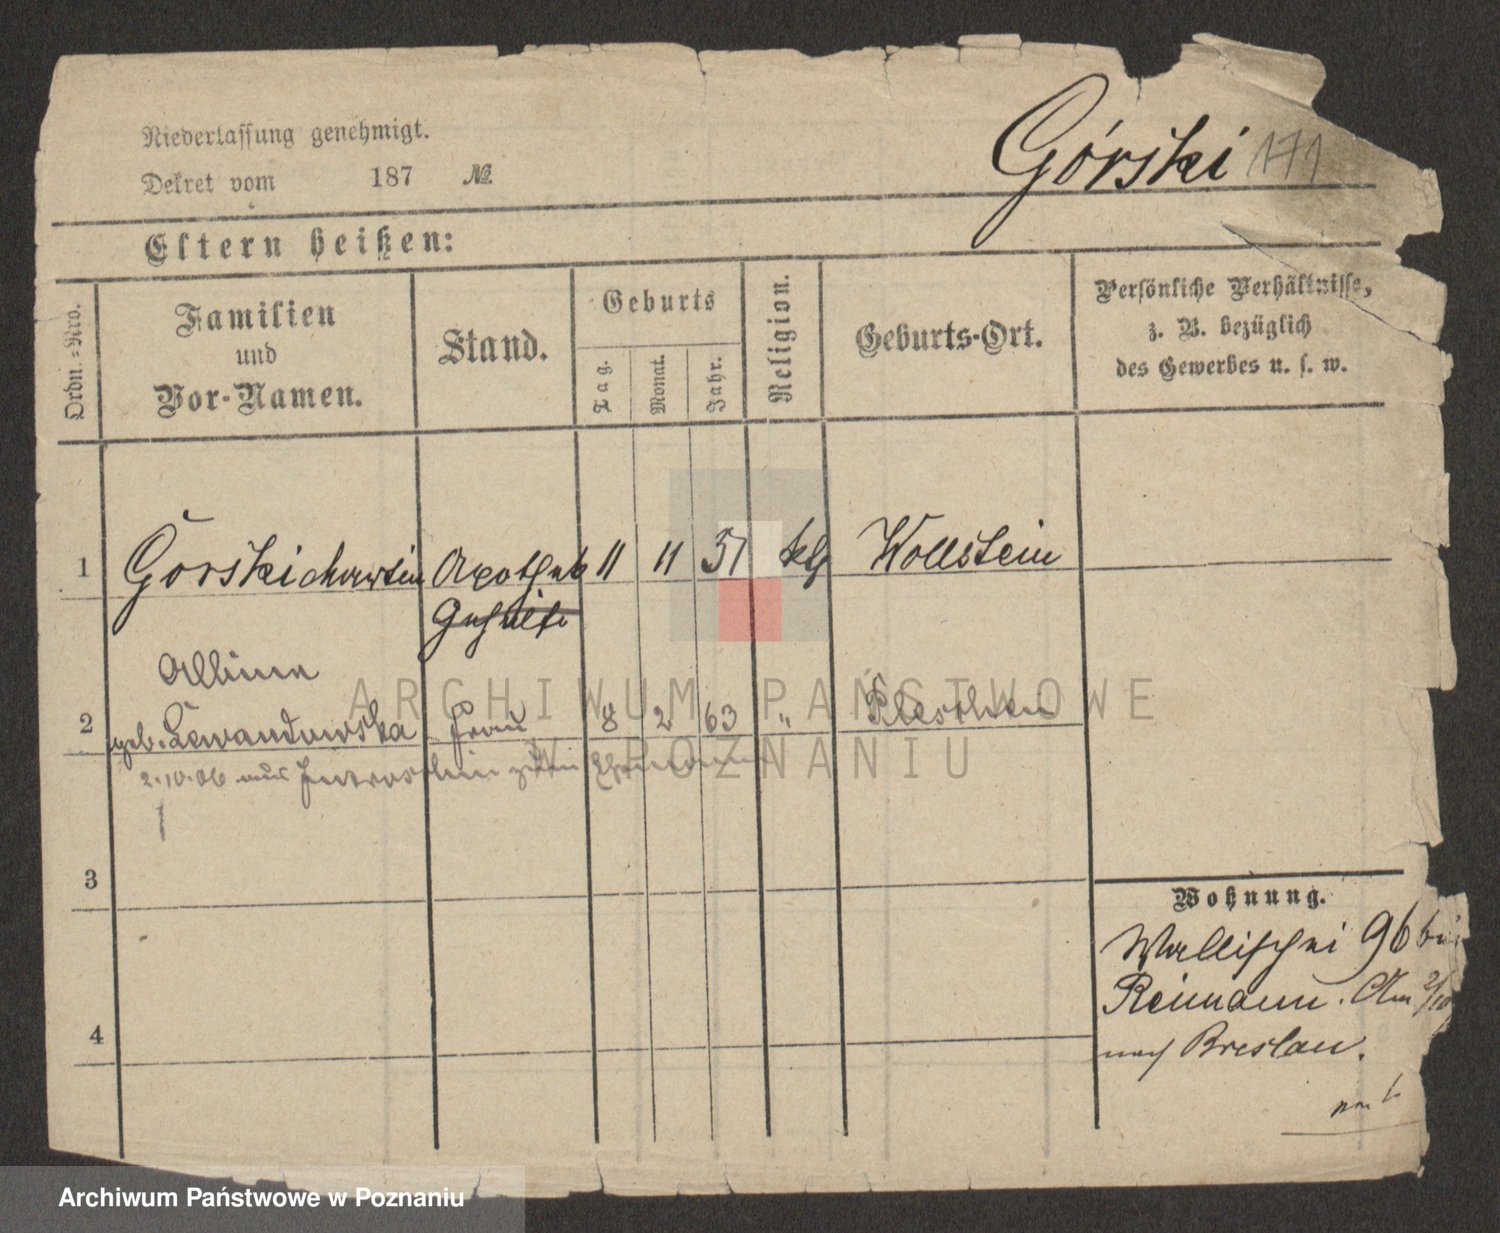 Niederlassung genehmigt.
Dekret vom 187 №
Górski 171
Eltern heißen:
Ordn.-Nro.
Familien und Vor-Namen.
Stand.
Geburts
Tag.
Monat.
Jahr.
Religion.
Geburts-Ort.
Persönliche Verhältnisse,
z. B. bezüglich
des Gewerbes u. s. w.
1 Górski Martin Apothek 11 11 51 kth Wollstein
Gehülfe
Albina
2 geb. Lewandowska Frau 8 2 63 " Pleschen
2.10.06 aus Inowraclin zum Ehemann
3
4
Wohnung.
Wallischei 96 bei
Reimann. Am 2/10
nach Breslau.
ARCHIWUM PAŃSTWOWE
W POZNANIU
Archiwum Państwowe w Poznaniu